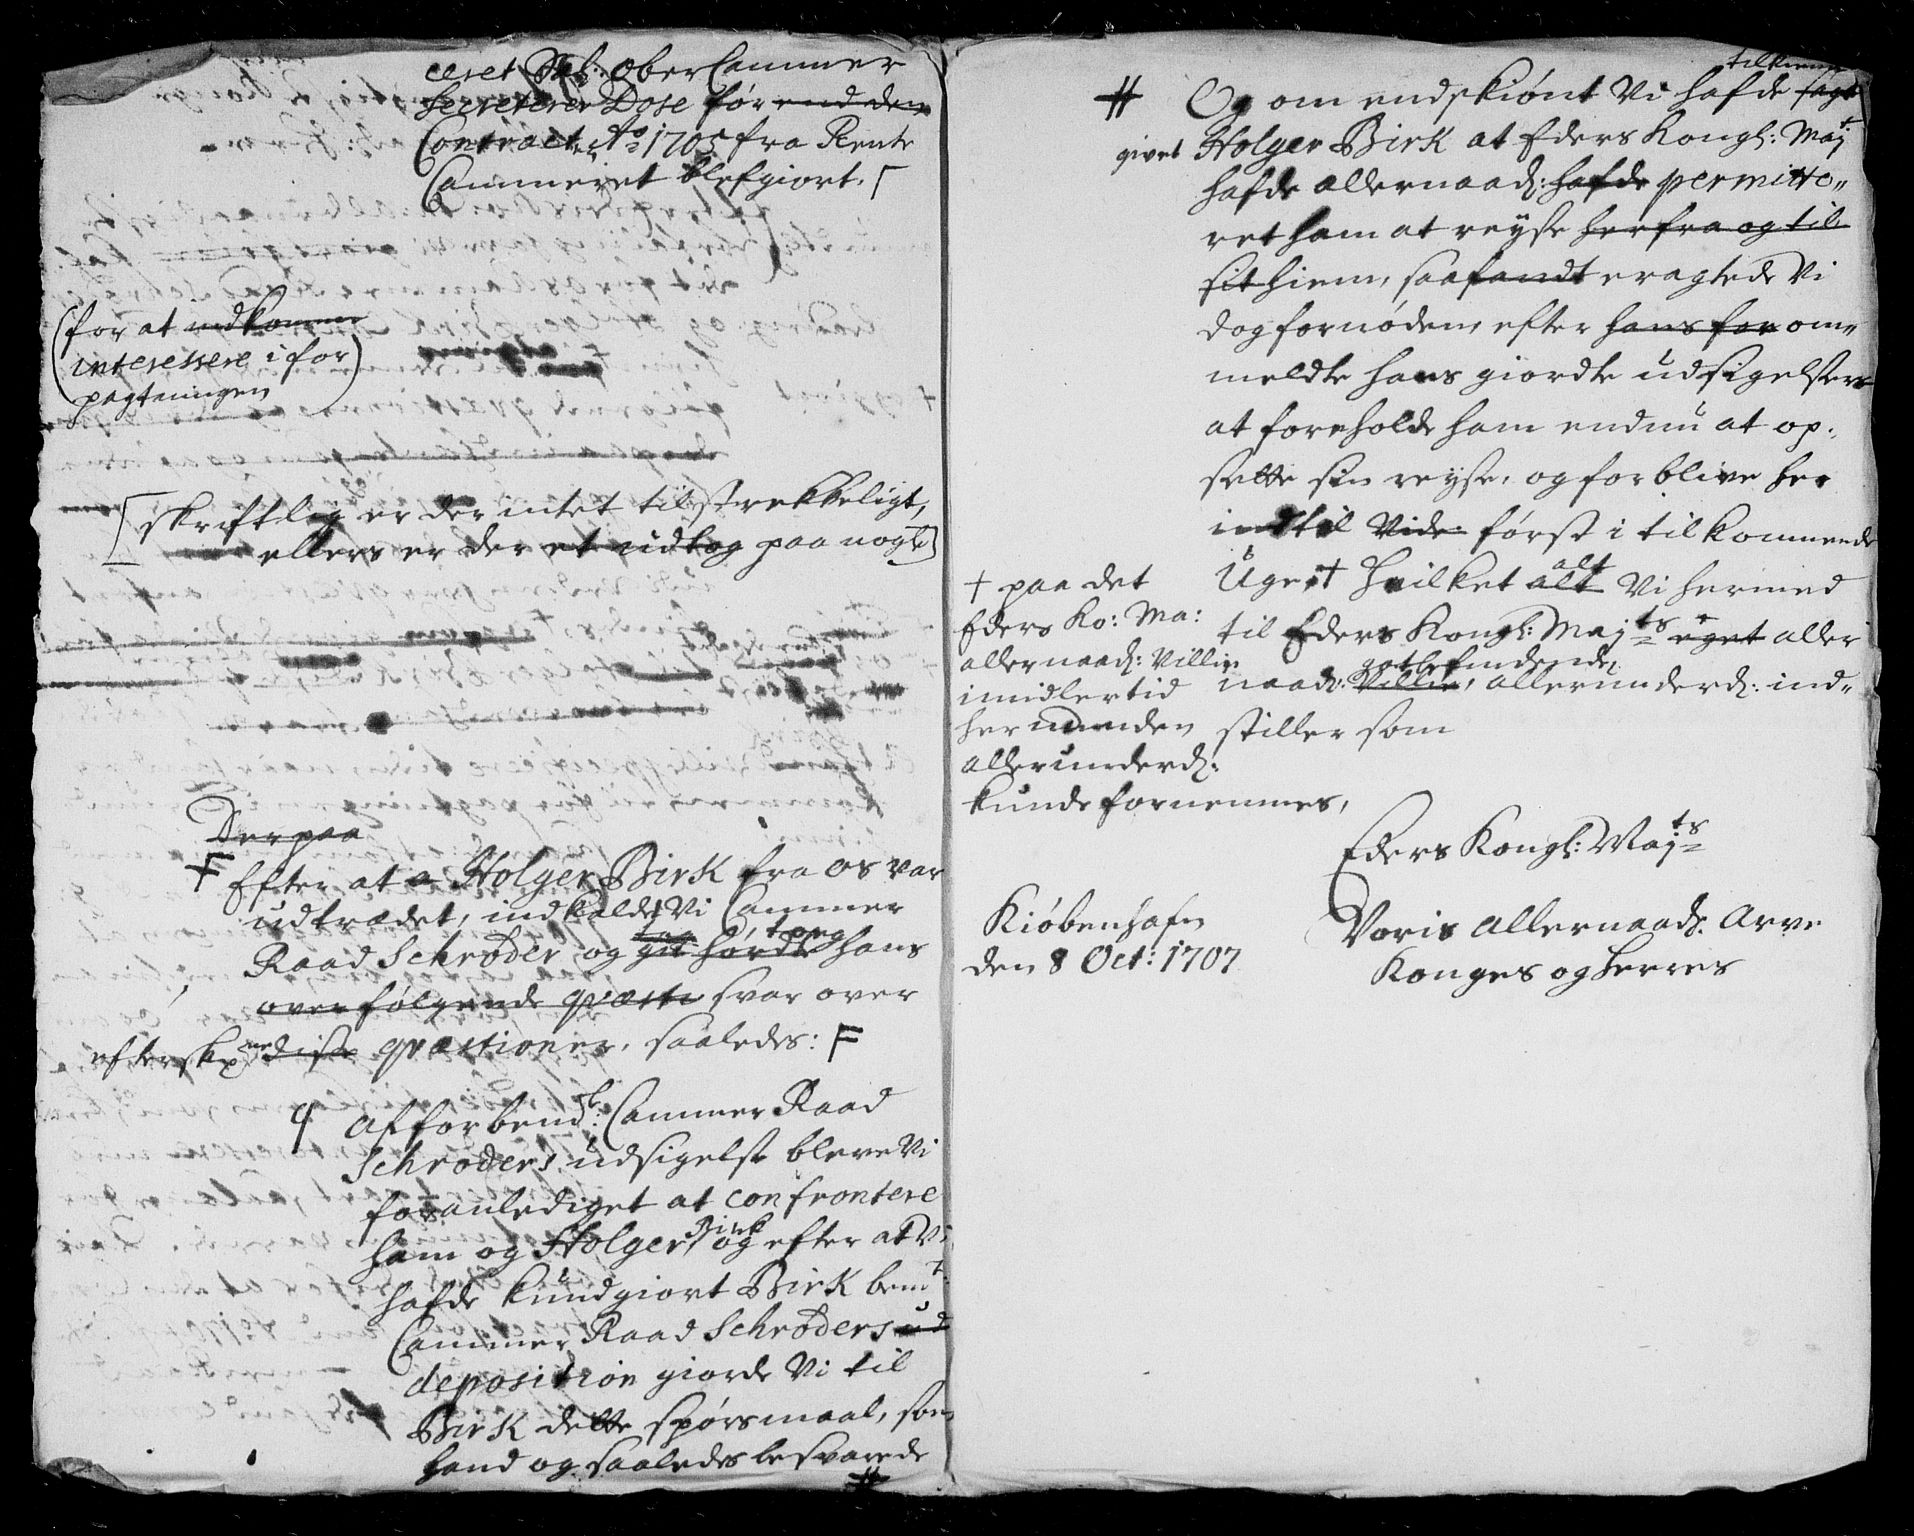 ceret Sal: Ober Cammer
Secreterer Dose før end den
Contract Ao 1705 fra Rente
Cammeret blef giort. ſ
(for at indkomme
interessere i for
pagtningen)
[skriftlig er der intet tilstrekkeligt,
ellers er der et udtog paa nogle]
Der paa
F Efter at a Holger Birk fra os var
udtrædet, indkaldte Vi Cammer
Raad Schrøder og hørdte hans
over følgende qvæsti svar over
eftersk. ne disse qvæstioner, saaledes: F
4 Af forbemte: Cammer Raad
Schrøders udsigelse bleve Vi
foranlediget at confrontere
ham og Holger Birk og efter at Vi
hafde kundgiort Birk bemte
Cammer Raad Schrøders ud
deposition giorde Vi til
Birk dette spørsmaal, som
hand og saaledes besvarede
#
tilkiende
# Og om endskiønt Vi hafde sagt
givet Holger Birk at Eders Kongl: Mayt
hafde allernaadl: hafde permitte„
ret ham at reyse herfra og til
sit hiem, saa fandt eragtede Vi
dog fornøden, efter hans for om„
meldte hans giordte udsigelser
at foreholde ham endnu at op„
sette sin reyse, og forblive her
indtil Vide første i tilkommende
Uge, + hvilket alt alt Vi hermed
til Eders Kongl: Majts eget aller
naadl: Villie, gotbefindende, allerunderdl: ind„
stiller som
+ paa det
Eders Ko: Ma:
allernaadl: Villie
imidlertid
her
allerunderdl:
kunde fornemmes,
Eders Kongl: Majts
Kiøbenhafn
den 8 Oct: 1707
Voris Allernaadl. Arve
Konges og Herres